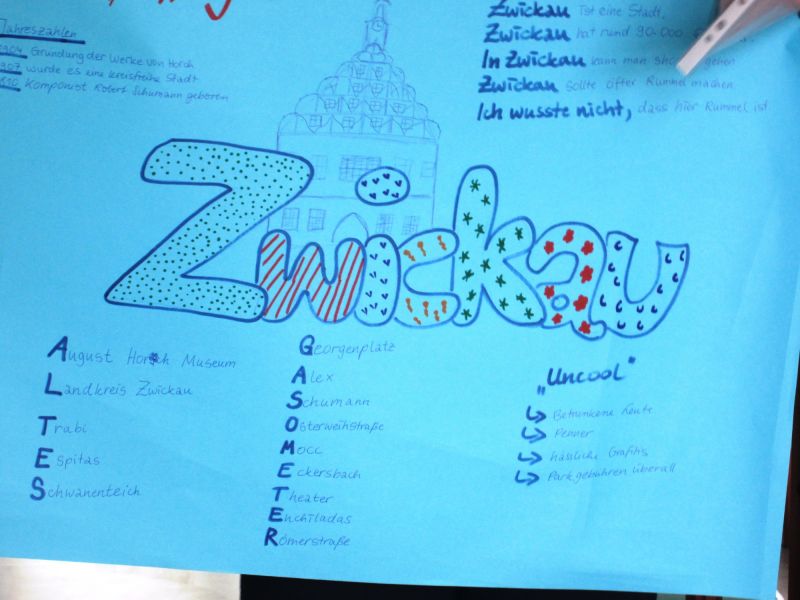 Jahreszahlen
1904 Gründung der Werke von Horch
1907 wurde es eine kreisfreie Stadt
1810 Komponist Robert Schumann geboren
Zwickau ist eine Stadt.
Zwickau hat rund 90.000
In Zwickau kann man gehen
Zwickau sollte öfter Rummel machen
Ich wusste nicht, dass hier Rummel ist
Zwickau
August Horch Museum
Landkreis Zwickau
Trabi
Espitas
Schwanenteich
Georgenplatz
Alex
Schumann
Osterweihstraße
Mocc
Eckersbach
Theater
Enchiladas
Römerstraße
„Uncool"
Betrunkene Leute
Penner
hässliche Grafitis
Parkgebühren überall